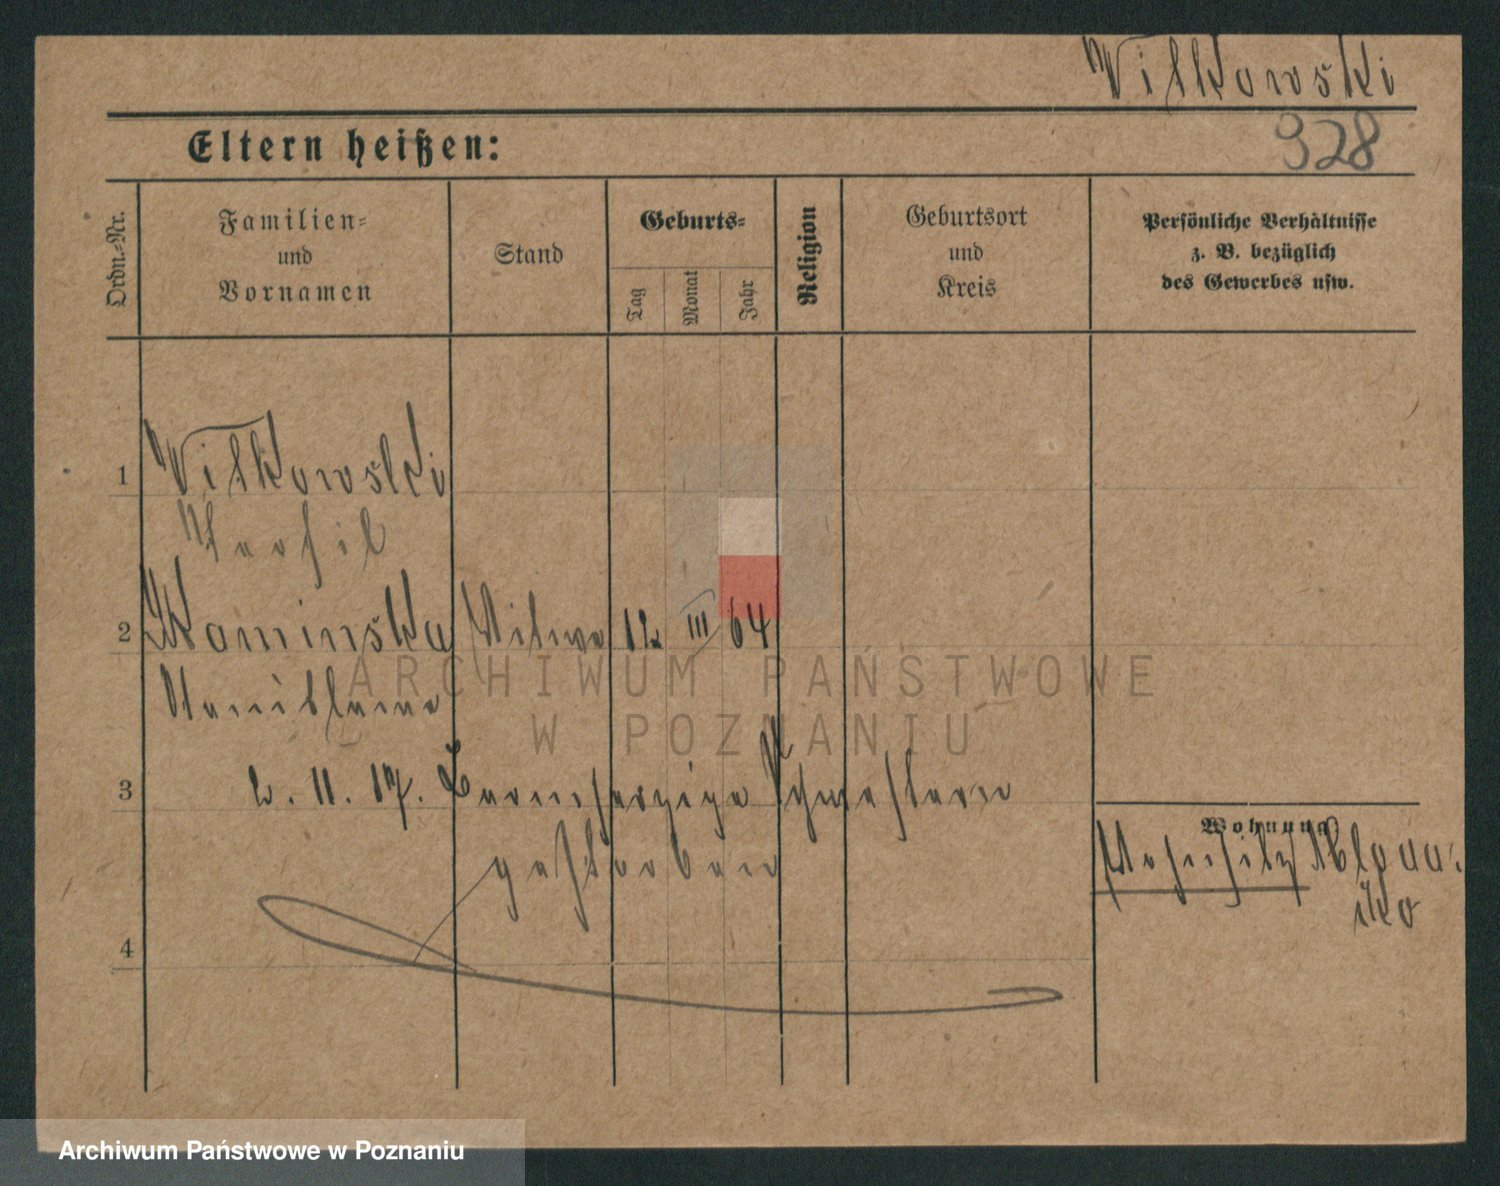 Witkowski
Eltern heißen:
928
Ordn.-Nr.
Familien-
und
Vornamen
Stand
Geburts-
Tag
Monat
Jahr
Religion
Geburtsort
und
Kreis
Persönliche Verhältnisse
z. B. bezüglich
des Gewerbes usw.
1 Witkowski
Teofil
2 Kominska Witwe 12. III 64
Stanislawa
ARCHIWUM PAŃSTWOWE
W POZNANIU
3 2. 11. 17. Barmherzige Schwestern
gestorben
Wohnung
4
Archiwum Państwowe w Poznaniu